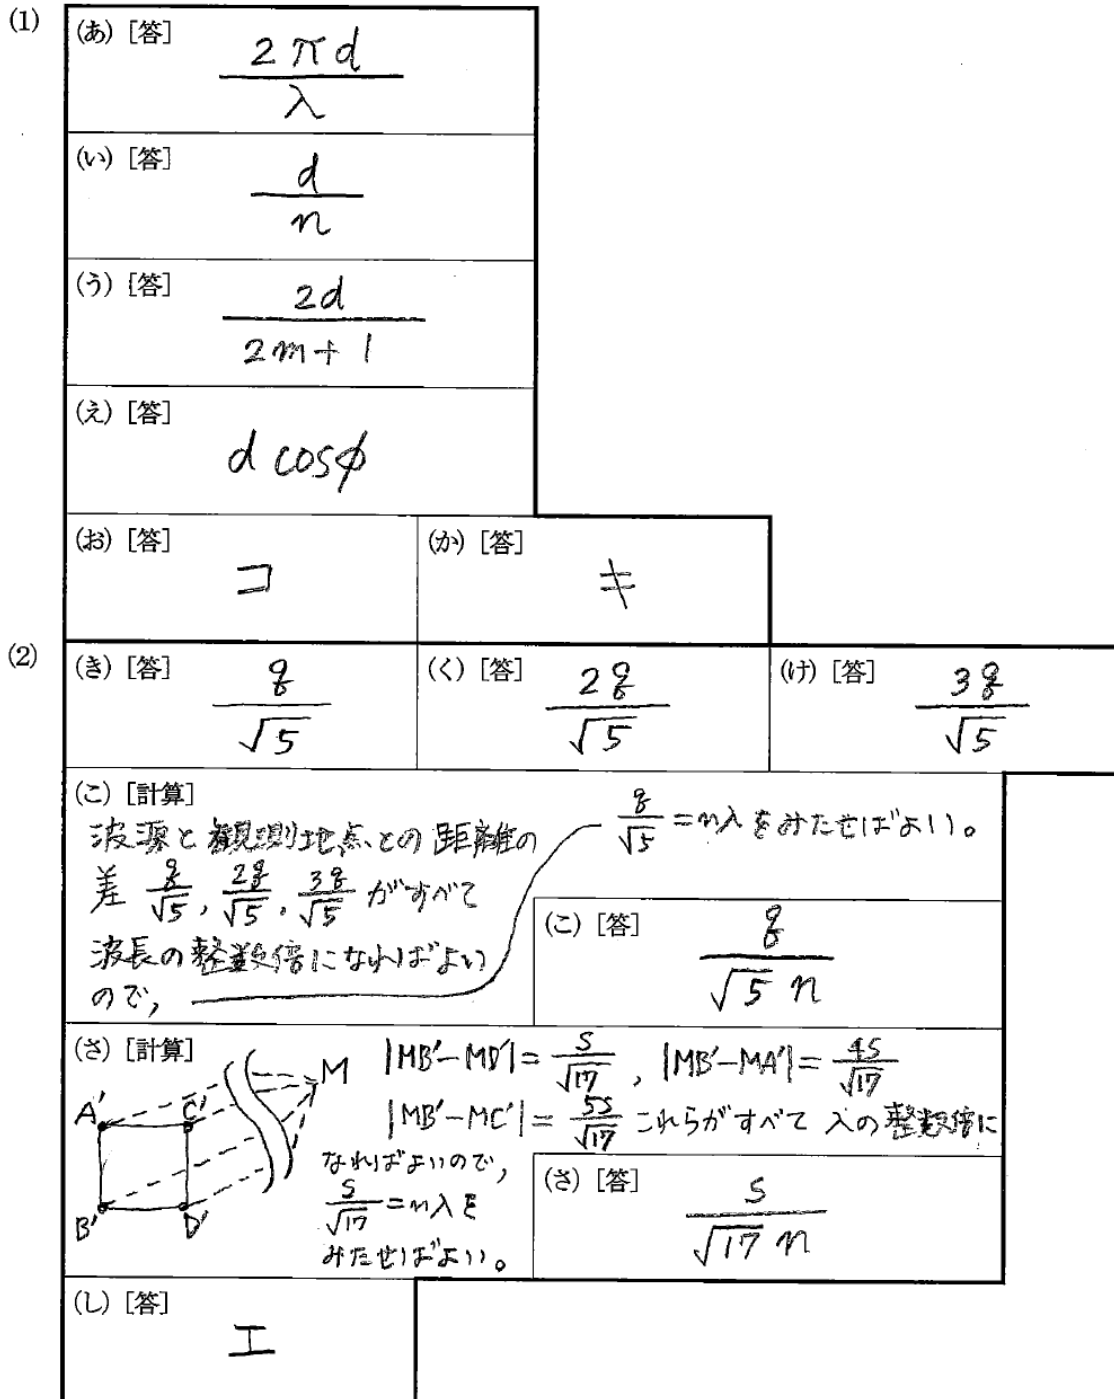 (1)
(あ) [答]
2πd/λ
(い) [答]
d/n
(う) [答]
2d/(2m+1)
(え) [答]
d cosφ
(お) [答]
コ
(か) [答]
キ
(2)
(き) [答]
q/√5
(く) [答]
2q/√5
(け) [答]
3q/√5
(こ) [計算]
波源と観測地点との距離の
差 q/√5, 2q/√5, 3q/√5 がすべて
波長の整数倍になればよい
ので,
q/√5 = nλ をみたせばよい。
(こ) [答]
q/(√5 n)
(さ) [計算]
A' C' M
B' D'
|MB'-MD'| = s/√17, |MB'-MA'| = 4s/√17
|MB'-MC'| = 5s/√17 これらがすべて λの整数倍に
なればよいので,
s/√17 = nλ を
みたせばよい。
(さ) [答]
s/(√17 n)
(し) [答]
エ